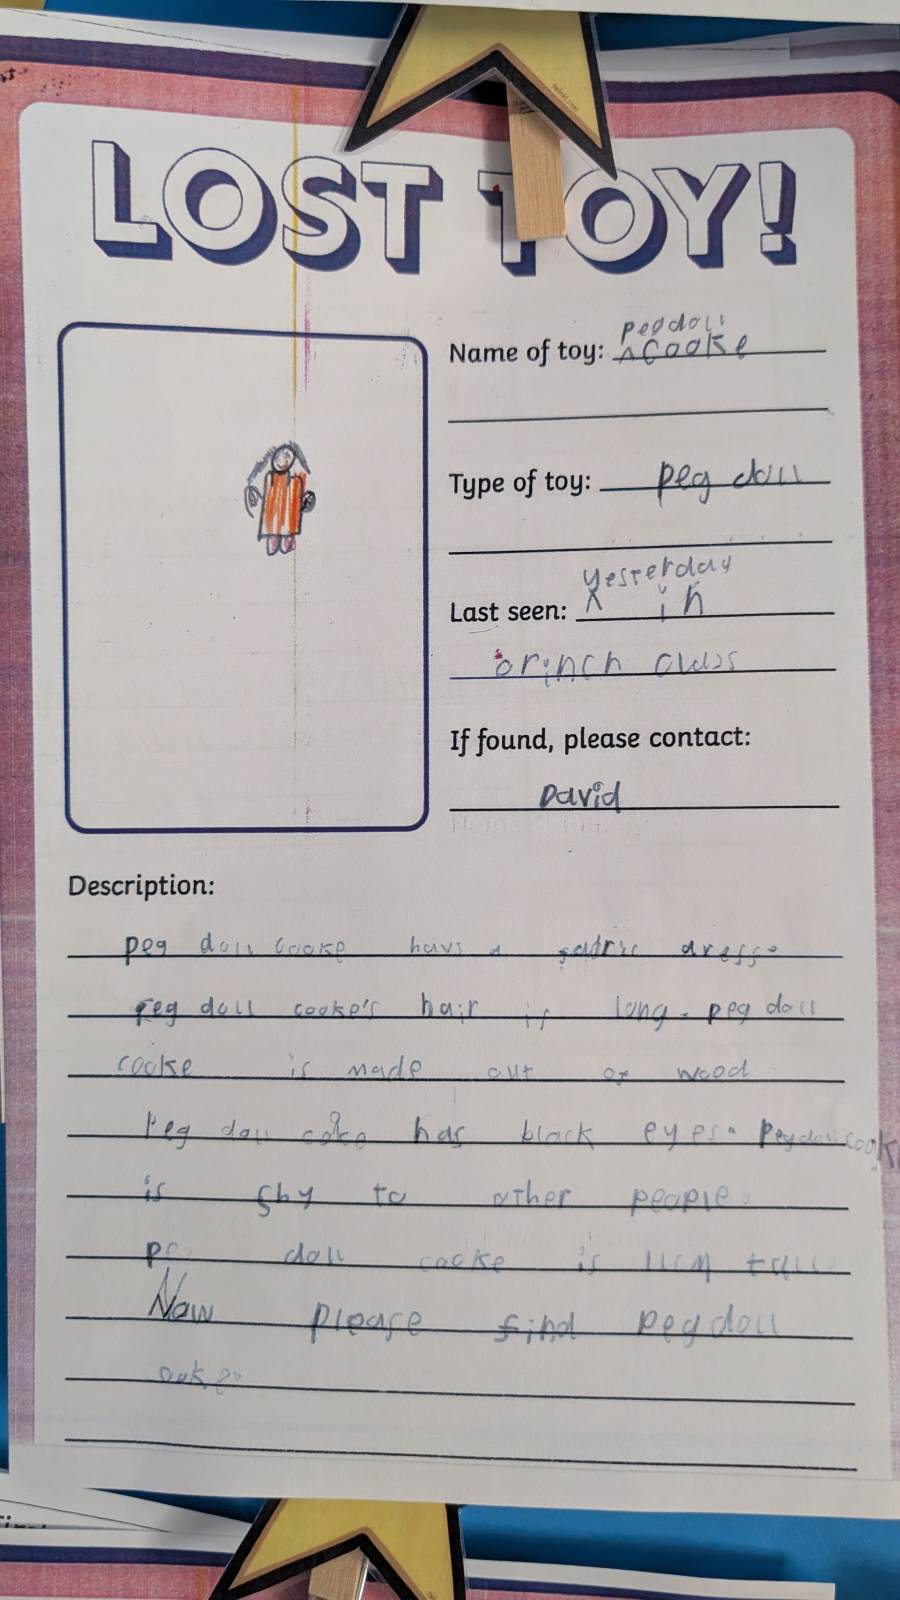 LOST TOY!
peg doll
Name of toy: ^ cooke
Type of toy: peg doll
yesterday
Last seen: ^ in
orinch class
If found, please contact:
David
Description:
peg doll cooke havs a fadric dress.
Peg doll cooke's hair is long. peg doll
cooke is made out of wood
Peg doll has black eyes. Peg doll cooke
is shy to other people
doll cooke is 11cM tall
Now please find peg doll